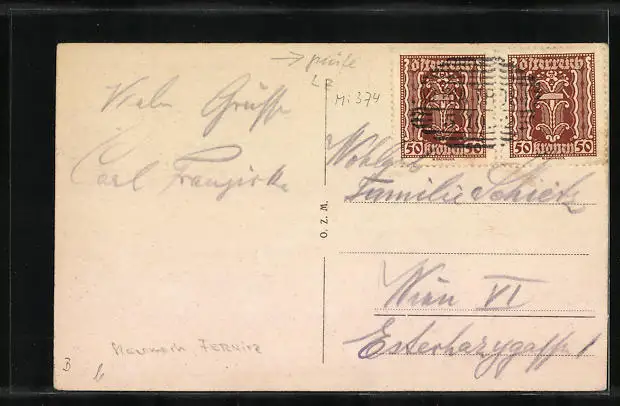 Viele Grüsse
Carl Franziska
→ prüfe
LP
Mi 374
österreich
50 kronen 50
österreich
50 kronen 50
Wohlgeb.
Familie Schiek
Wien VI
Esterhazygasse 1
O. Z. M.
Steiermark, FERNITZ
B